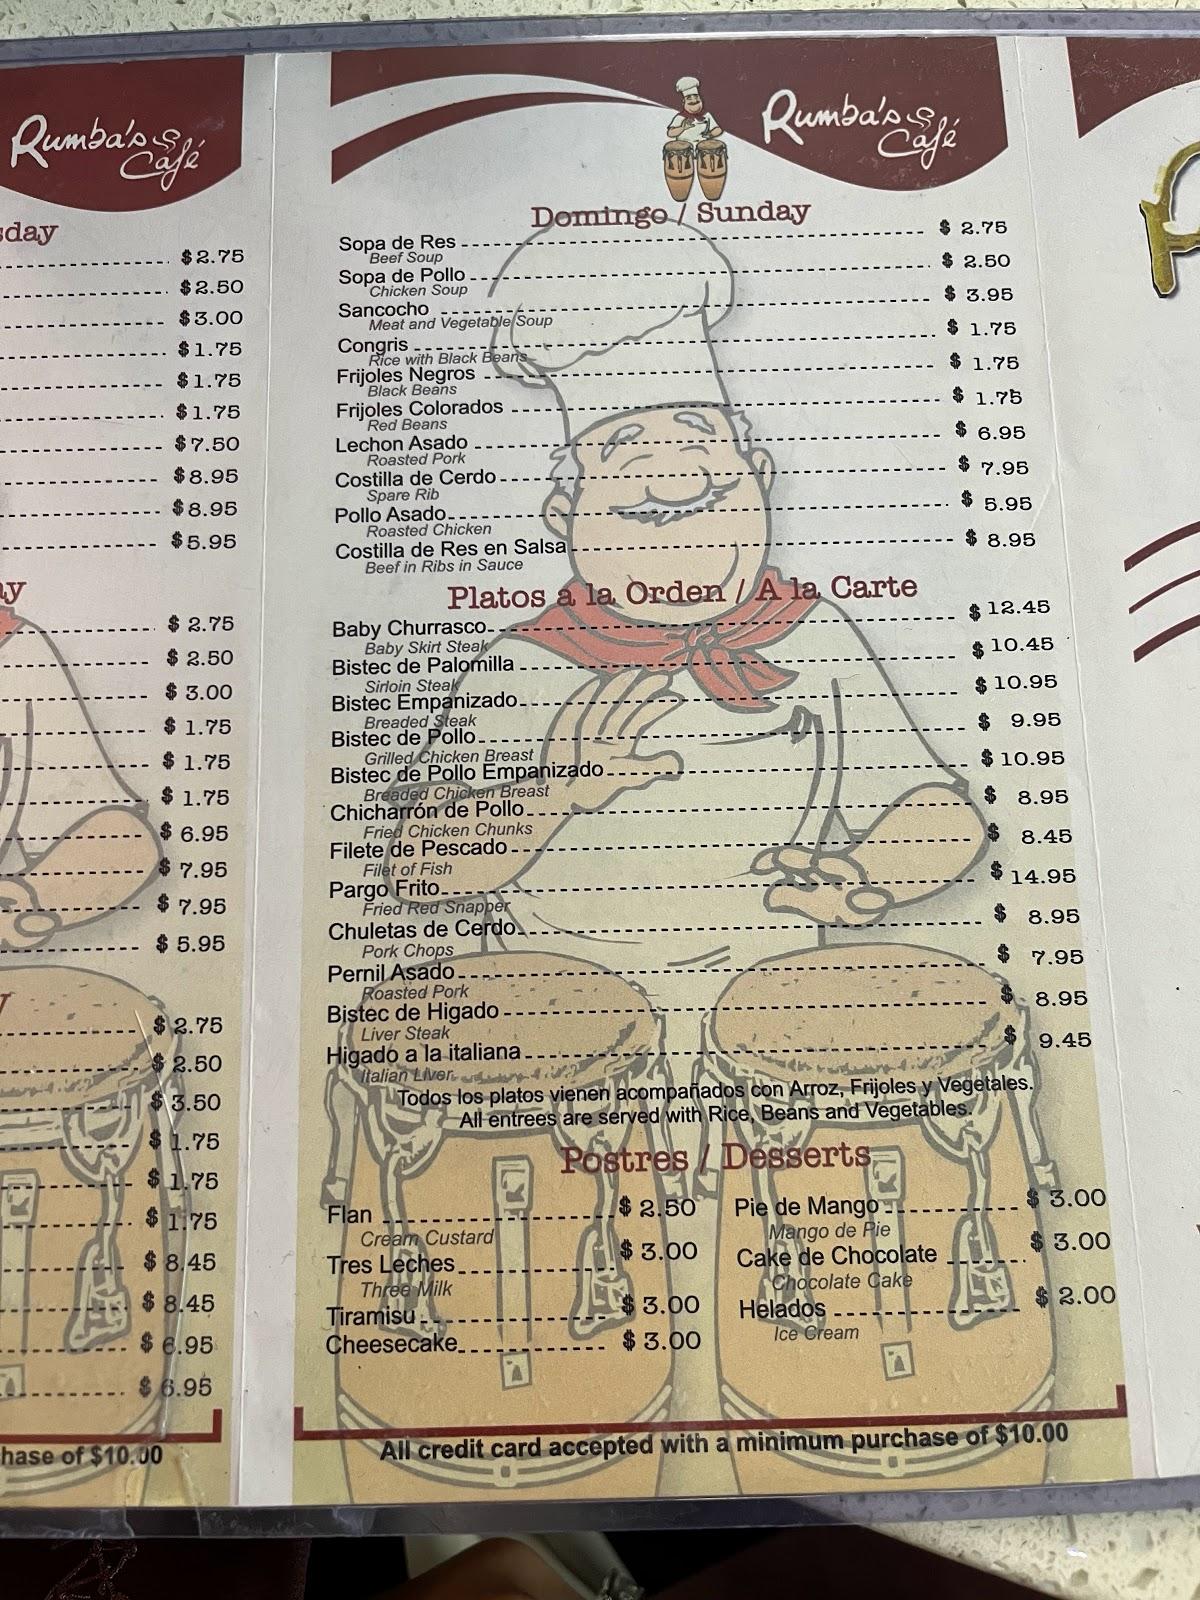 Rumba's Café
sday
$2.75
$2.50
$3.00
$1.75
$1.75
$1.75
$7.50
$8.95
$8.95
$5.95
ay
$ 2.75
$ 2.50
$ 3.00
$ 1.75
$ 1.75
$ 1.75
$ 6.95
$ 7.95
$ 7.95
$ 5.95
y
$ 2.75
$ 2.50
$ 3.50
$ 1.75
$ 1.75
$ 1.75
$ 8.45
$ 8.45
$ 6.95
$ 6.95
hase of $10.00
Rumba's Café
Domingo / Sunday
Sopa de Res $ 2.75
Beef Soup
Sopa de Pollo $ 2.50
Chicken Soup
Sancocho $ 3.95
Meat and Vegetable Soup
Congris $ 1.75
Rice with Black Beans
Frijoles Negros $ 1.75
Black Beans
Frijoles Colorados $ 1.75
Red Beans
Lechon Asado $ 6.95
Roasted Pork
Costilla de Cerdo $ 7.95
Spare Rib
Pollo Asado $ 5.95
Roasted Chicken
Costilla de Res en Salsa $ 8.95
Beef in Ribs in Sauce
Platos a la Orden / A la Carte
Baby Churrasco $ 12.45
Baby Skirt Steak
Bistec de Palomilla $ 10.45
Sirloin Steak
Bistec Empanizado $ 10.95
Breaded Steak
Bistec de Pollo $ 9.95
Grilled Chicken Breast
Bistec de Pollo Empanizado $ 10.95
Breaded Chicken Breast
Chicharrón de Pollo $ 8.95
Fried Chicken Chunks
Filete de Pescado $ 8.45
Filet of Fish
Pargo Frito $ 14.95
Fried Red Snapper
Chuletas de Cerdo $ 8.95
Pork Chops
Pernil Asado $ 7.95
Roasted Pork
Bistec de Higado $ 8.95
Liver Steak
Higado a la italiana $ 9.45
Italian Liver
Todos los platos vienen acompañados con Arroz, Frijoles y Vegetales.
All entrees are served with Rice, Beans and Vegetables.
Postres / Desserts
Flan $ 2.50
Cream Custard
Tres Leches $ 3.00
Three Milk
Tiramisu $ 3.00
Cheesecake $ 3.00
Pie de Mango $ 3.00
Mango de Pie
Cake de Chocolate $ 3.00
Chocolate Cake
Helados $ 2.00
Ice Cream
All credit card accepted with a minimum purchase of $10.00